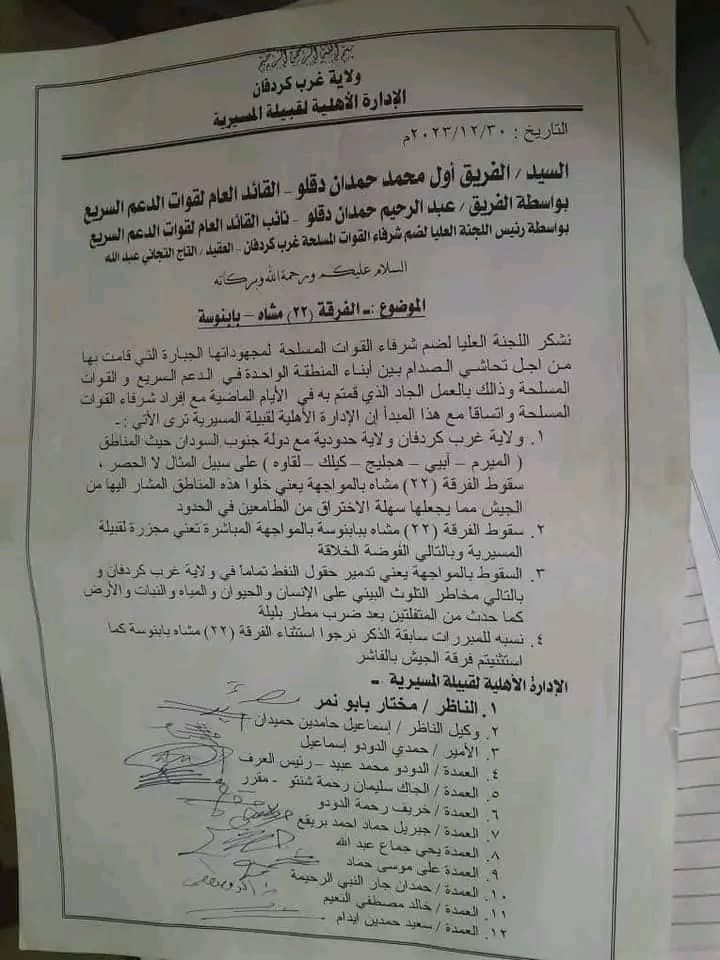 بسم الله الرحمن الرحيم
ولاية غرب كردفان
الإدارة الأهلية لقبيلة المسيرية
التاريخ : ٢٠٢٣/١٢/٣٠م
السيد/ الفريق أول محمد حمدان دقلو – القائد العام لقوات الدعم السريع
بواسطة الفريق/ عبد الرحيم حمدان دقلو – نائب القائد العام لقوات الدعم السريع
بواسطة رئيس اللجنة العليا لضم شرفاء القوات المسلحة غرب كردفان – العقيد/ التاج التجاني عبد الله
السلام عليكم ورحمة الله وبركاته
الموضوع :ـ الفرقة (٢٢) مشاه – بابنوسة
نشكر اللجنة العليا لضم شرفاء القوات المسلحة لمجهوداتها الجبارة التي قامت بها
من اجل تحاشي الصدام بين أبناء المنطقة الواحدة في الدعم السريع و القوات
المسلحة وذالك بالعمل الجاد الذي قمتم به في الأيام الماضية مع إفراد شرفاء القوات
المسلحة و اتساقاً مع هذا المبدأ إن الإدارة الأهلية لقبيلة المسيرية ترى الأتي :ـ
١. ولاية غرب كردفان ولاية حدودية مع دولة جنوب السودان حيث المناطق
( الميرم – أبيي – هجليج – كيلك – لقاوه ) على سبيل المثال لا الحصر ،
سقوط الفرقة (٢٢) مشاه بالمواجهة يعني خلوا هذه المناطق المشار اليها من
الجيش مما يجعلها سهلة الاختراق من الطامعين في الحدود
٢. سقوط الفرقة (٢٢) مشاه ببابنوسة بالمواجهة المباشرة تعني مجزرة لقبيلة
المسيرية وبالتالي الفوضة الخلاقة
٣. السقوط بالمواجهة يعني تدمير حقول النفط تماماً في ولاية غرب كردفان و
بالتالي مخاطر التلوث البيئي على الإنسان و الحيوان و المياه و النبات والأرض
كما حدث من المتفلتين بعد ضرب مطار بليلة
٤. نسبه للمبررات سابقة الذكر نرجوا استثناء الفرقة (٢٢) مشاه بابنوسة كما
استثنيتم فرقة الجيش بالفاشر
الإدارة الأهلية لقبيلة المسيرية –
١. الناظر / مختار بابو نمر
٢. وكيل الناظر / إسماعيل حامدين حميدان
٣. الأمير / حمدي الدودو إسماعيل
٤. العمدة / الدودو محمد عبيد – رئيس العرف
٥. العمدة / الجاك سليمان رحمة شنتو - مقرر
٦. العمدة / خريف رحمة الدودو
٧. العمدة / جبريل حماد احمد بريقع
٨. العمدة / يحي جماع عبد الله
٩. العمدة / على موسى حماد
١٠. العمدة / حمدان جار النبي الرحيمة
١١. العمدة / خالد مصطفي النعيم
١٢. العمدة / سعيد حمدين ايدام